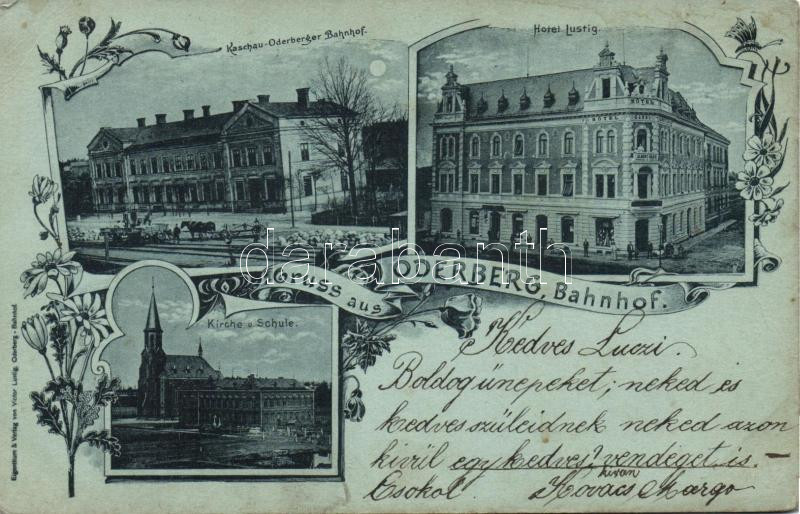 Kaschau-Oderberger Bahnhof.
Hotel Lustig.
HOTEL
HOTEL
Kirche u. Schule.
Gruss aus ODERBERG, Bahnhof.
darabanth
Eigentum & Verlag von Victor Lustig, Oderberg-Bahnhof.
Kedves Luczi.
Boldog ünnepeket; neked és
kedves szüleidnek neked azon
kivül egy kedves? vendéget is. —
kiván
Csokol Kovács Margo